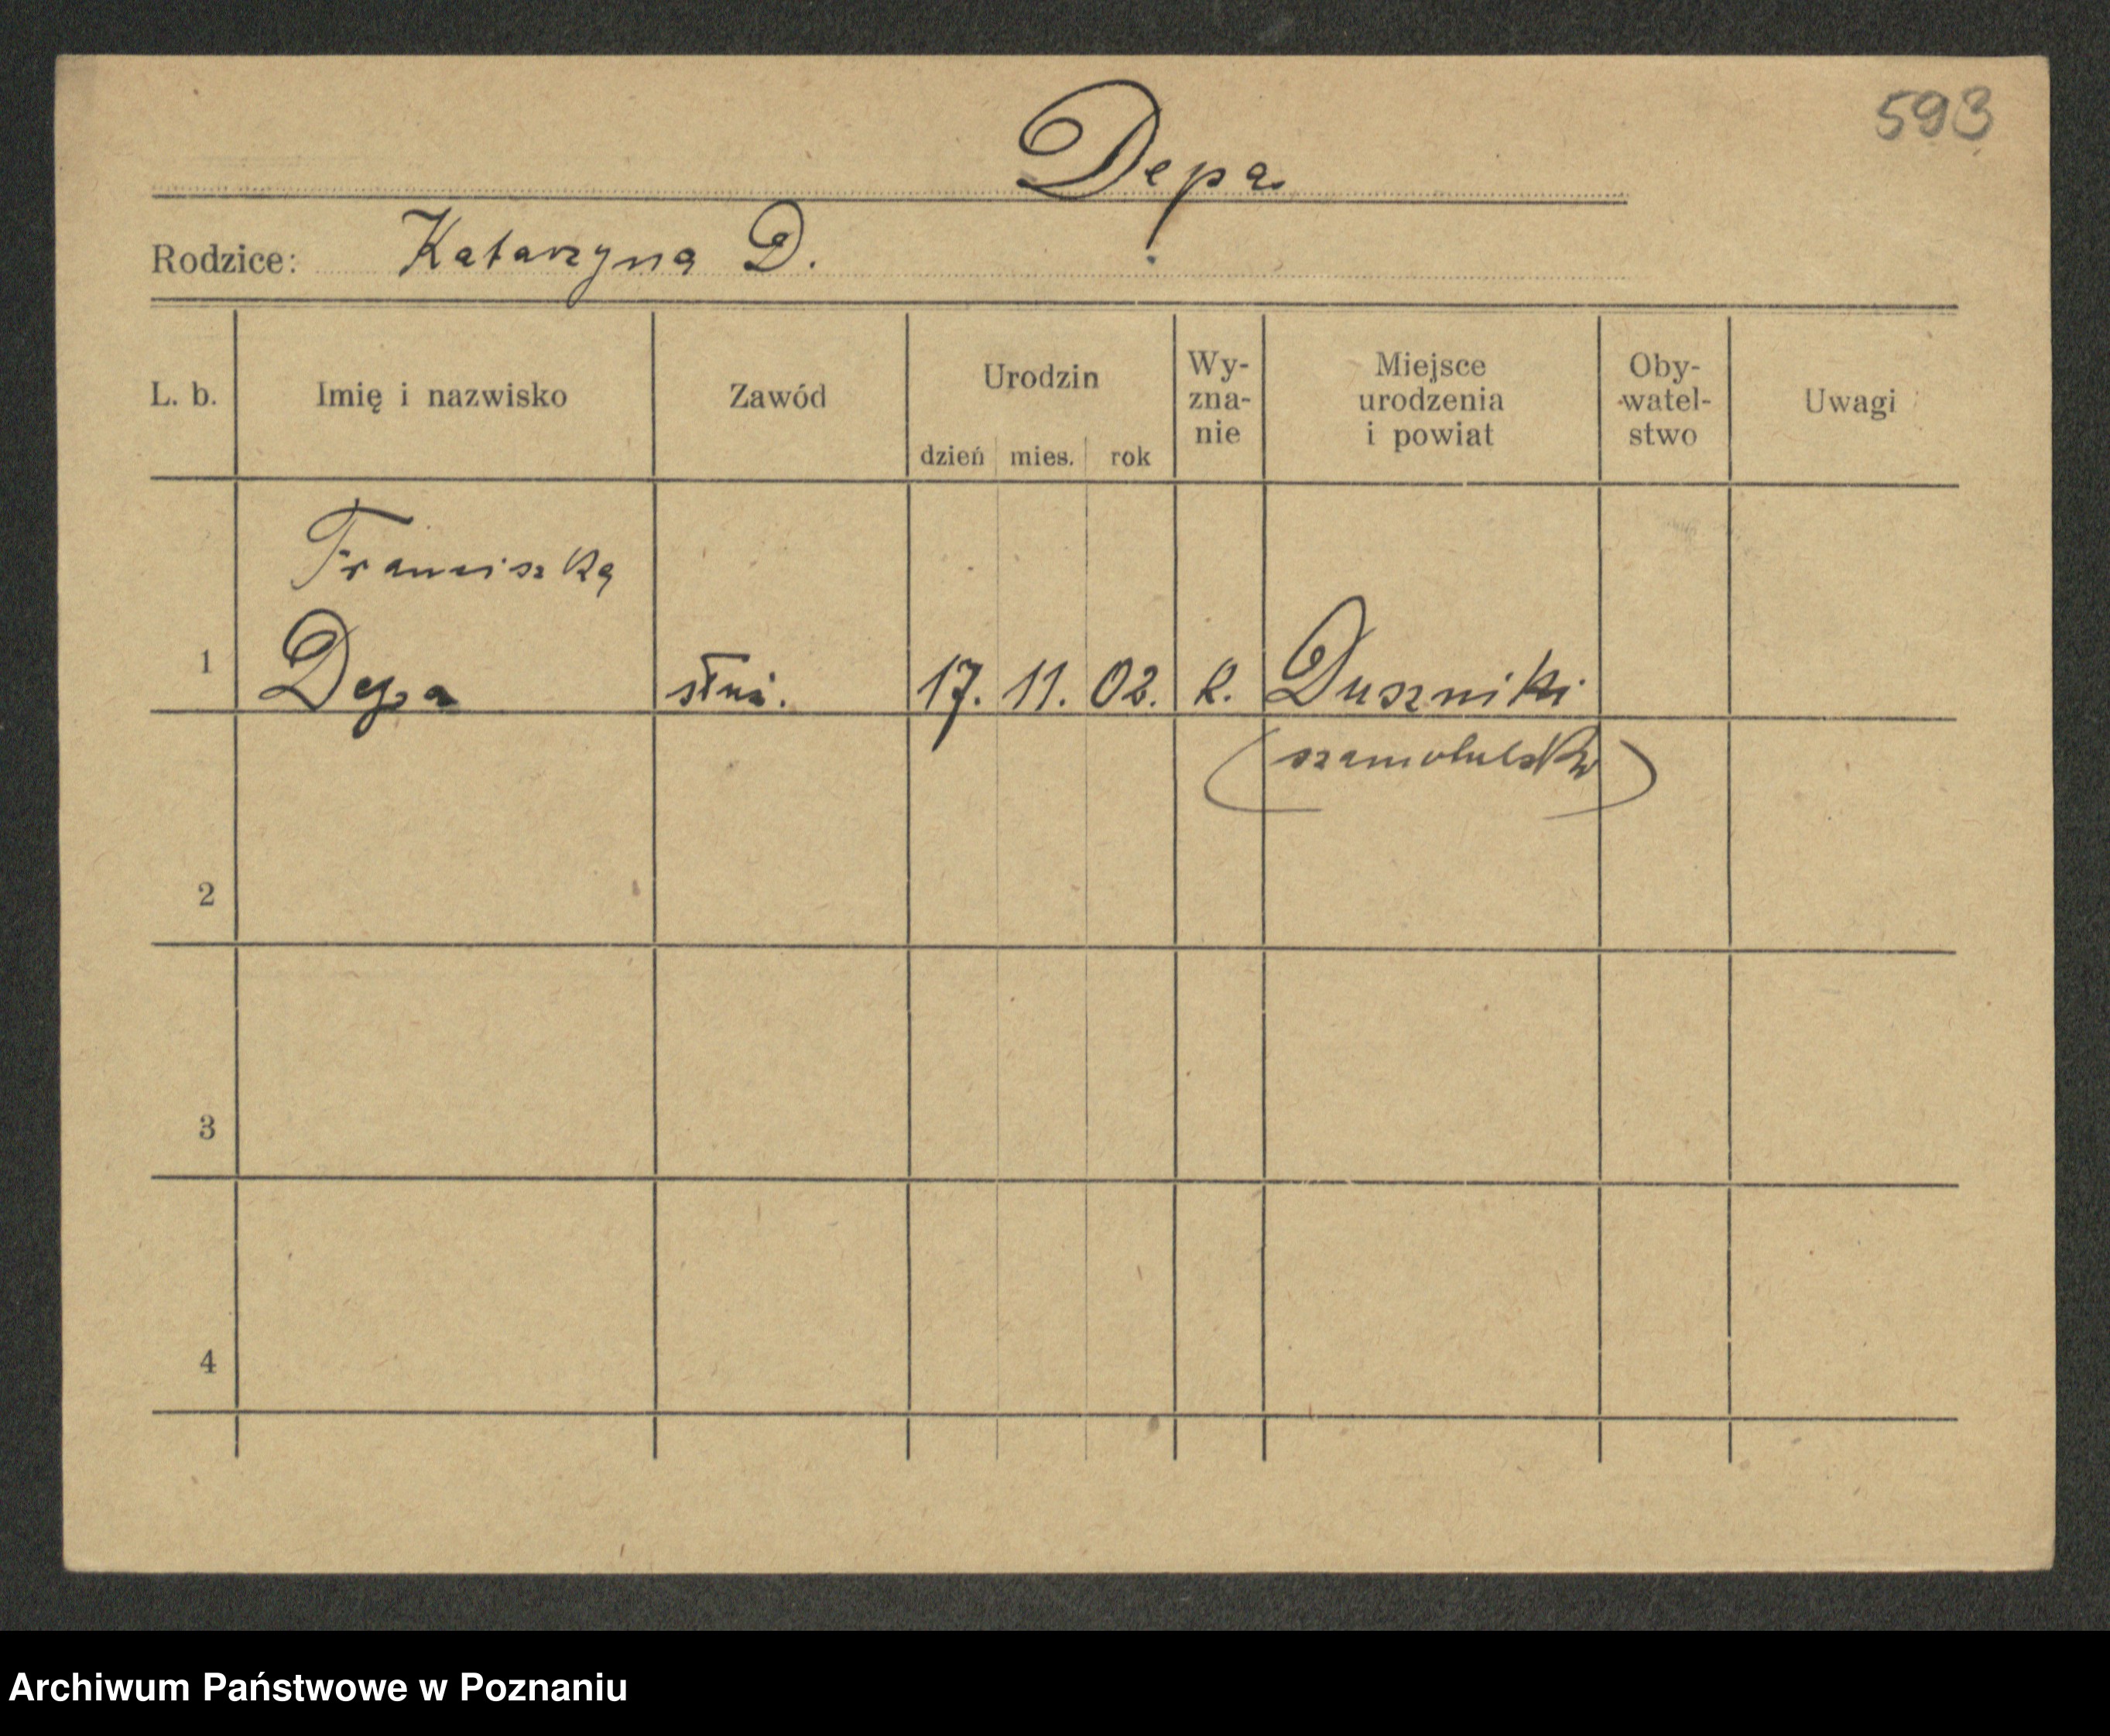 593
Depa
Rodzice: Katarzyna D.
L. b. Imię i nazwisko Zawód Urodzin dzień mies. rok Wy-zna-nie Miejsce urodzenia i powiat Oby-watel-stwo Uwagi
Franciszka
1 Depa służ. 17. 11. 02. k. Duszniki
(szamotulski)
2
3
4
Archiwum Państwowe w Poznaniu